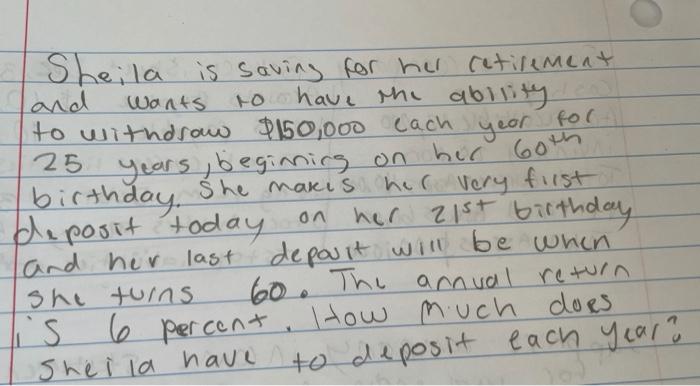 Sheila is saving for her retirement
and wants to have the ability
to withdraw $150,000 each year for
25 years, beginning on her 60th
birthday. She makes her very first
deposit today on her 21st birthday
and her last deposit will be when
she turns 60. The annual return
is 6 percent. How much does
Sheila have to deposit each year?